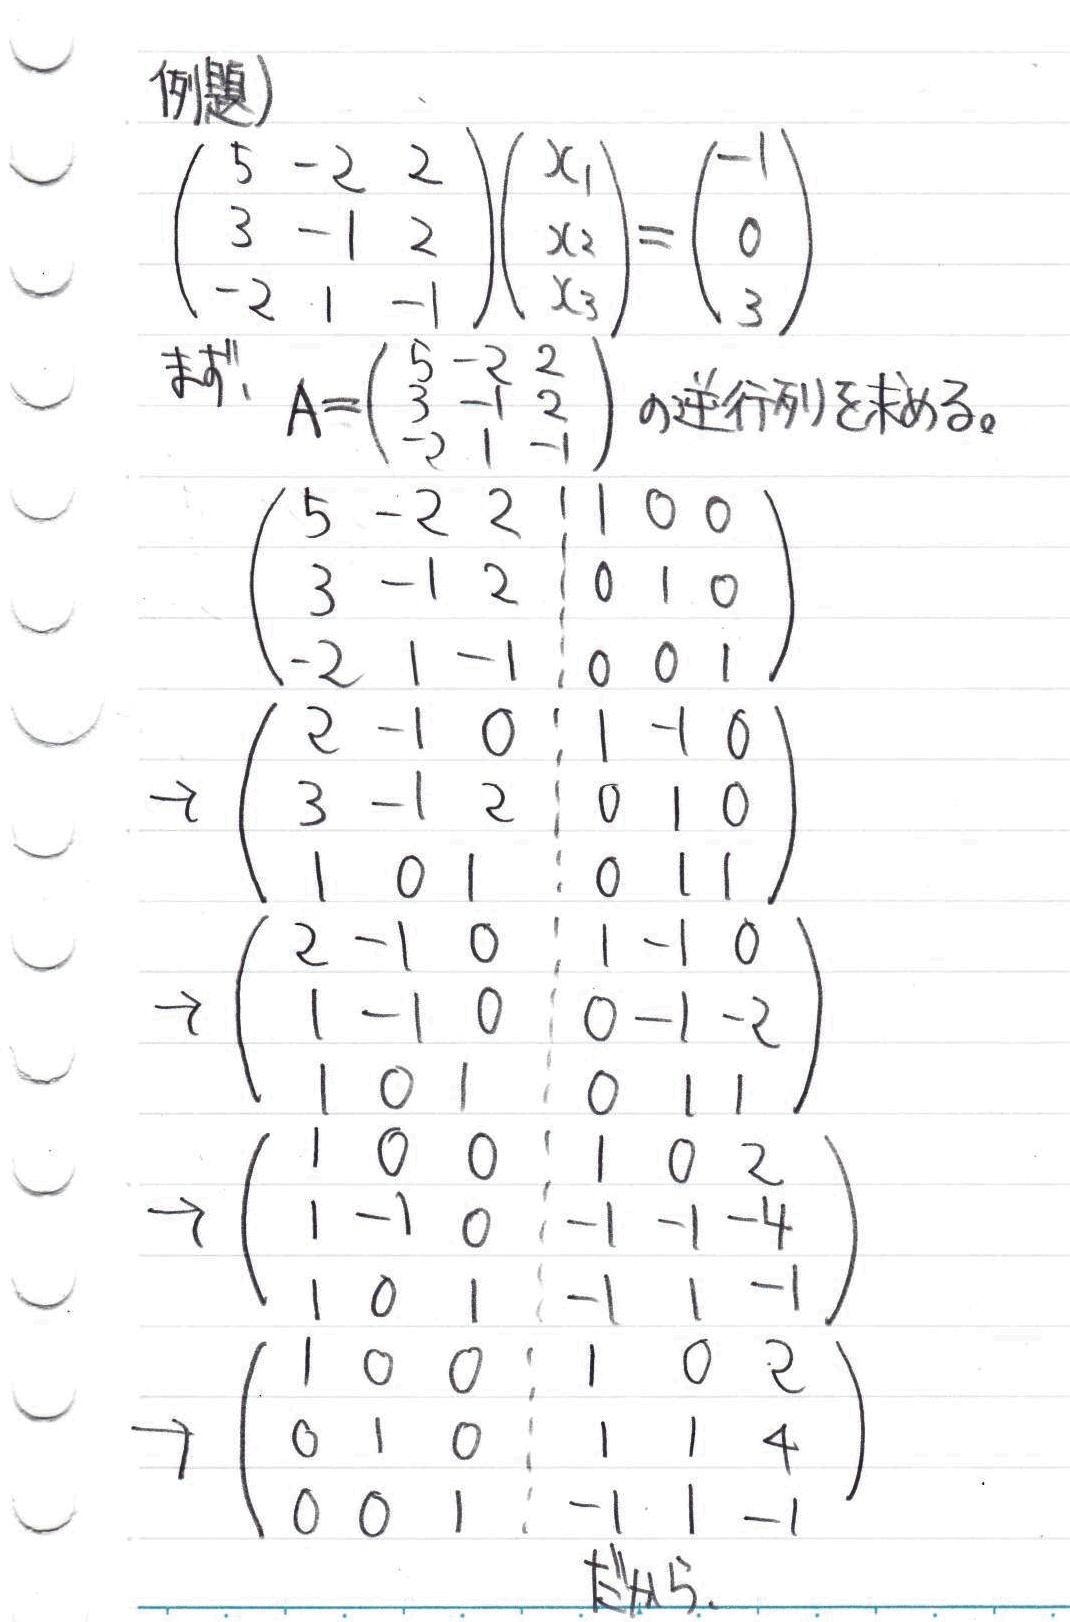 例題)
( 5 -2 2 ) ( x1 ) = ( -1 )
( 3 -1 2 ) ( x2 ) = ( 0 )
( -2 1 -1 ) ( x3 ) = ( 3 )
まず、 A=( 5 -2 2 / 3 -1 2 / -2 1 -1 ) の逆行列を求める。
( 5 -2 2 ¦ 1 0 0 )
( 3 -1 2 ¦ 0 1 0 )
( -2 1 -1 ¦ 0 0 1 )
( 2 -1 0 ¦ 1 -1 0 )
→ ( 3 -1 2 ¦ 0 1 0 )
( 1 0 1 ¦ 0 1 1 )
( 2 -1 0 ¦ 1 -1 0 )
→ ( 1 -1 0 ¦ 0 -1 -2 )
( 1 0 1 ¦ 0 1 1 )
( 1 0 0 ¦ 1 0 2 )
→ ( 1 -1 0 ¦ -1 -1 -4 )
( 1 0 1 ¦ -1 1 -1 )
( 1 0 0 ¦ 1 0 2 )
→ ( 0 1 0 ¦ 1 1 4 )
( 0 0 1 ¦ -1 1 -1 )
だから、